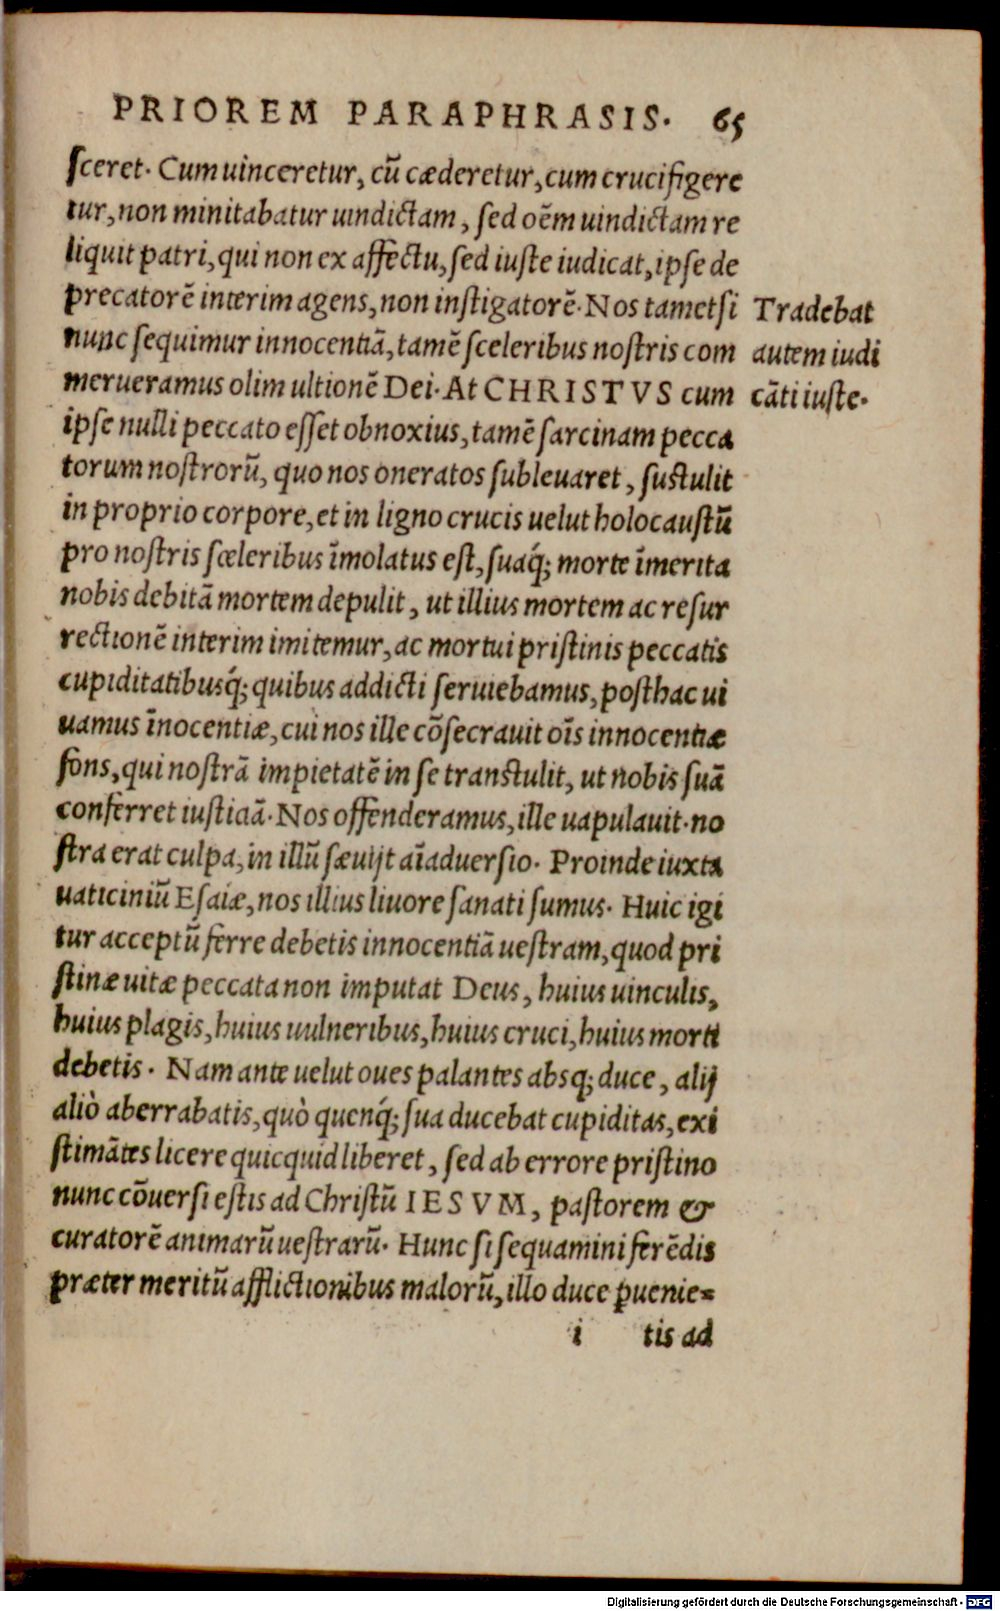 PRIOREM PARAPHRASIS. 65
sceret. Cum uinceretur, cū cæderetur, cum crucifigere
tur, non minitabatur uindictam, sed oēm uindictam re
liquit patri, qui non ex affectu, sed iuste iudicat, ipse de
precatorē interim agens, non instigatorē. Nos tametsi
nunc sequimur innocentiā, tamē sceleribus nostris com
merueramus olim ultionē Dei. At CHRISTVS cum
ipse nulli peccato esset obnoxius, tamē sarcinam pecca
torum nostrorū, quo nos oneratos subleuaret, sustulit
in proprio corpore, et in ligno crucis uelut holocaustū
pro nostris sceleribus īmolatus est, suaq́; morte īmerita
nobis debitā mortem depulit, ut illius mortem ac resur
rectionē interim imitemur, ac mortui pristinis peccatis
cupiditatibusq́; quibus addicti seruiebamus, posthac ui
uamus īnocentiæ, cui nos ille cōsecrauit oīs innocentiæ
fons, qui nostrā impietatē in se transtulit, ut nobis suā
conferret iusticiā. Nos offenderamus, ille uapulauit. no
stra erat culpa, in illū sæuijt aīaduersio. Proinde iuxta
uaticiniū Esaiæ, nos illius liuore sanati sumus. Huic igi
tur acceptū ferre debetis innocentiā uestram, quod pri
stinæ uitæ peccata non imputat Deus, huius uinculis,
huius plagis, huius uulneribus, huius cruci, huius morti
debetis. Nam ante uelut oues palantes absq; duce, alij
aliò aberrabatis, quò quenq́; sua ducebat cupiditas, exi
stimātes licere quicquid liberet, sed ab errore pristino
nunc cōuersi estis ad Christū IESVM, pastorem &
curatorē animarū uestrarū. Hunc si sequamini ferēdis
præter meritū afflictionibus malorū, illo duce ꝑuenie=
i tis ad
Tradebat
autem iudi
cāti iuste.
Digitalisierung gefördert durch die Deutsche Forschungsgemeinschaft - DFG